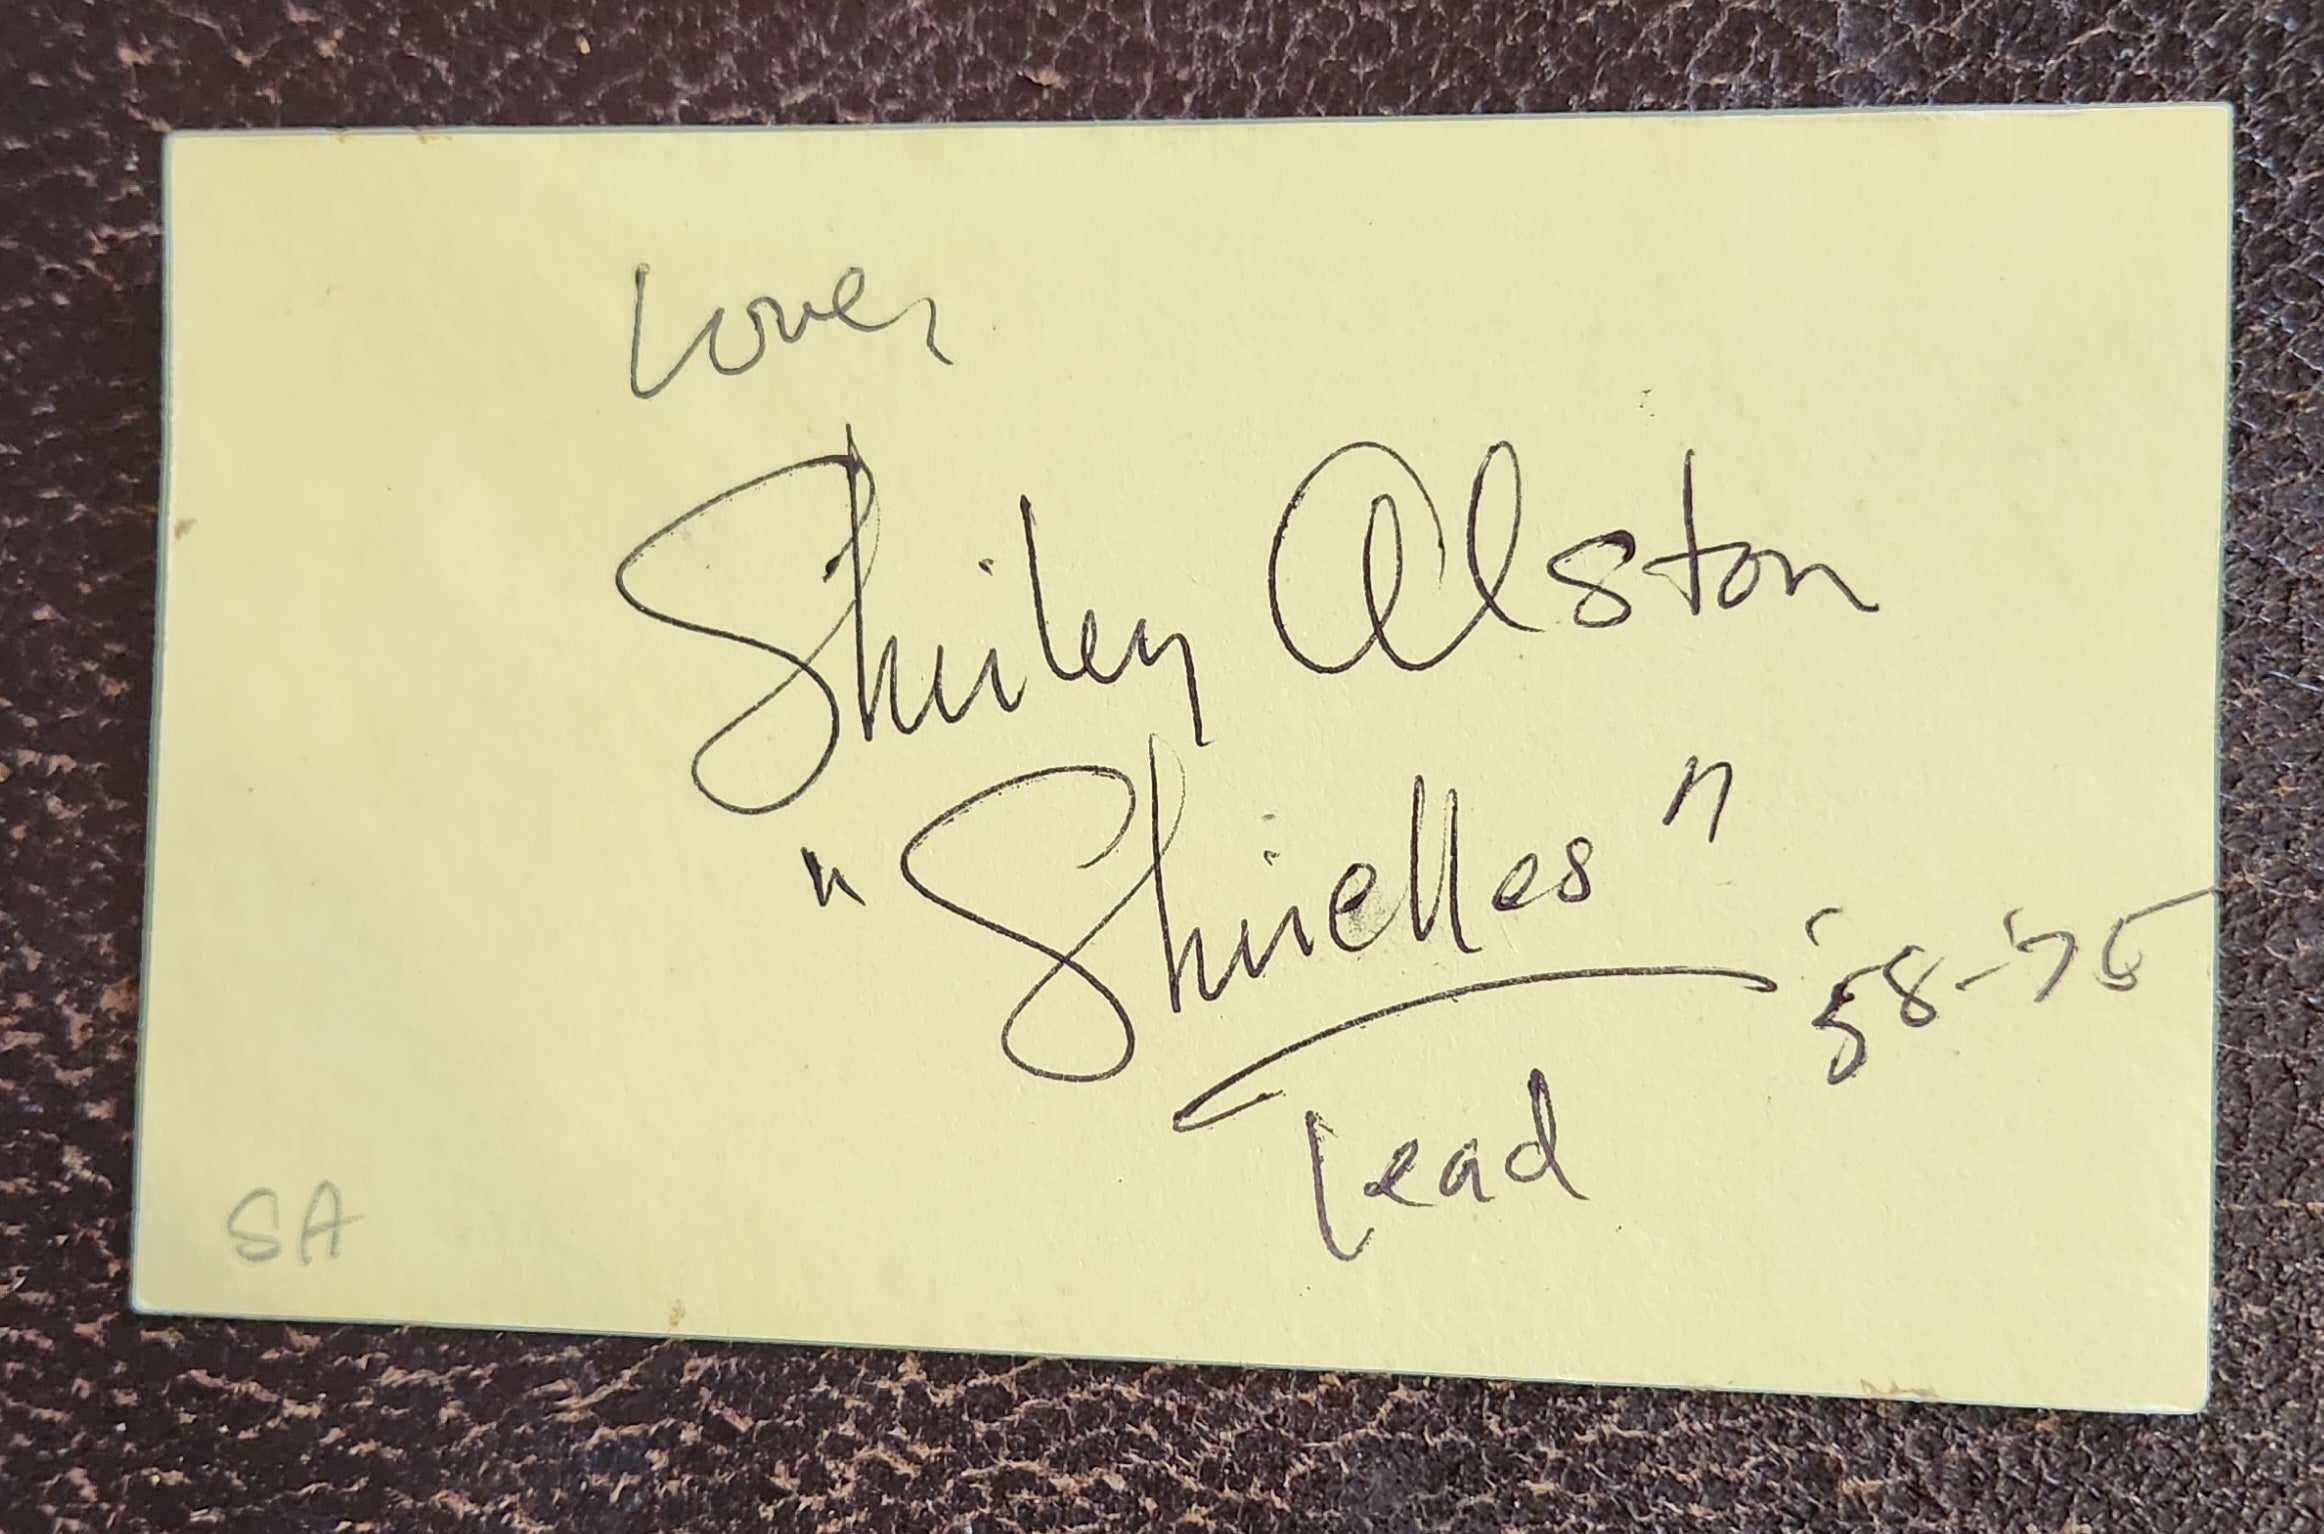 Love,
Shirley Alston
"Shirelles"
'58-'75
Lead
SA